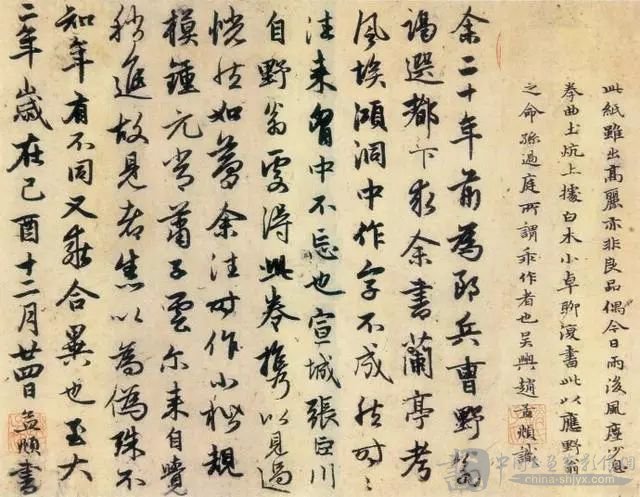 此紙雖出高麗亦非良品偶今日雨後風塵少息
拳曲土炕上據白木小卓聊復書此以應野翁
之命孫過庭所謂乖作者也吳興趙孟頫識
余二十年前為郎兵曹野翁
謁選都下求余書蘭亭考
風埃澒洞中作字不成然時時
往來胷中不忘也宣城張巨川
自野翁處得此卷攜以見過
恍然如夢余往時作小楷規
模鍾元常蕭子雲尓來自覺
稍進故見者悉以為偽殊不
知年有不同又乖合異也至大
二年歲在己酉十二月廿四日孟頫書
china-shjyx.com